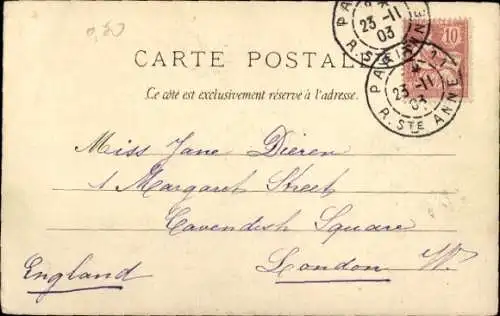 0,50
PARIS
23-11
03
R. STE ANNE
10
CARTE POSTALE
PARIS 11
23-11
03
R. STE ANNE
Ce côté est exclusivement réservé à l'adresse.
Miss Jane Dieren
1 Margaret Street
Cavendish Square
London W.
England